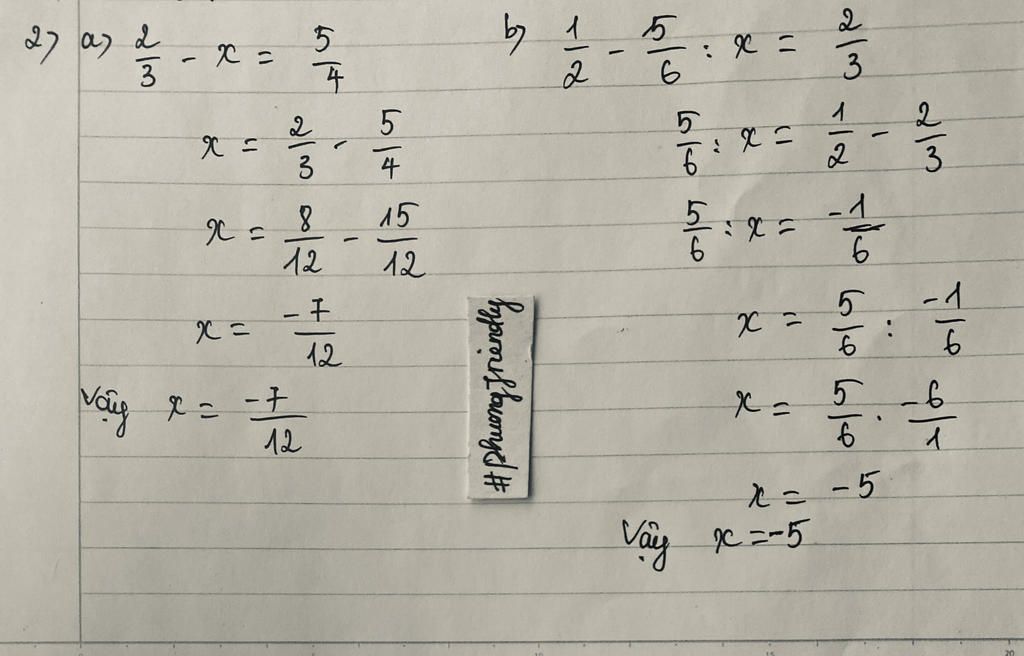 2) a) 2/3 - x = 5/4
x = 2/3 - 5/4
x = 8/12 - 15/12
x = -7/12
Vậy x = -7/12
b) 1/2 - 5/6 : x = 2/3
5/6 : x = 1/2 - 2/3
5/6 : x = -1/6
x = 5/6 : -1/6
x = 5/6 . -6/1
x = -5
Vậy x = -5